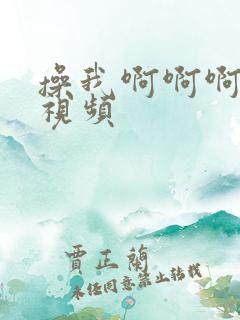 操我啊啊啊
視頻
賈正蘭
未任同意禁止转载